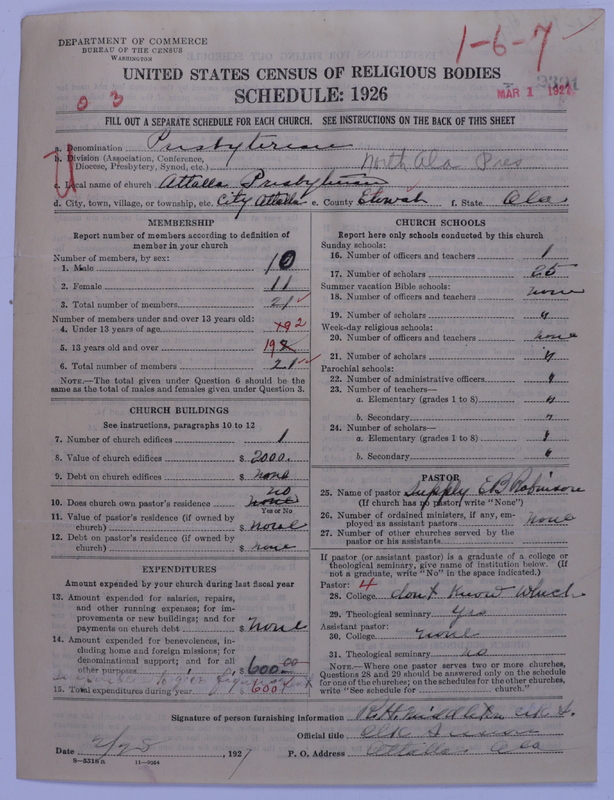 DEPARTMENT OF COMMERCE
BUREAU OF THE CENSUS
WASHINGTON
1-6-7
UNITED STATES CENSUS OF RELIGIOUS BODIES
SCHEDULE: 1926
MAR 1 1927
0 3
FILL OUT A SEPARATE SCHEDULE FOR EACH CHURCH. SEE INSTRUCTIONS ON THE BACK OF THIS SHEET
a. Denomination Presbyterian
b. Division (Association, Conference, Diocese, Presbytery, Synod, etc.) North Ala Pres
c. Local name of church Attalla Presbyterian
d. City, town, village, or township, etc. City Attalla e. County Etowah f. State Ala
MEMBERSHIP
Report number of members according to definition of member in your church
Number of members, by sex:
1. Male 10
2. Female 11
3. Total number of members 21
Number of members under and over 13 years old:
4. Under 13 years of age 2
5. 13 years old and over 19
6. Total number of members 21
NOTE.—The total given under Question 6 should be the same as the total of males and females given under Question 3.
CHURCH BUILDINGS
See instructions, paragraphs 10 to 12
7. Number of church edifices 1
8. Value of church edifices $ 2000.
9. Debt on church edifices $ none
10. Does church own pastor's residence no
Yes or No
11. Value of pastor's residence (if owned by church) $ none
12. Debt on pastor's residence (if owned by church) $ none
EXPENDITURES
Amount expended by your church during last fiscal year
13. Amount expended for salaries, repairs, and other running expenses; for improvements or new buildings; and for payments on church debt $ none
14. Amount expended for benevolences, including home and foreign missions; for denominational support; and for all other purposes $ 600.00
15. Total expenditures during year $ 600
CHURCH SCHOOLS
Report here only schools conducted by this church
Sunday schools:
16. Number of officers and teachers 1
17. Number of scholars 25
Summer vacation Bible schools:
18. Number of officers and teachers none
19. Number of scholars "
Week-day religious schools:
20. Number of officers and teachers none
21. Number of scholars "
Parochial schools:
22. Number of administrative officers "
23. Number of teachers—
a. Elementary (grades 1 to 8) "
b. Secondary "
24. Number of scholars—
a. Elementary (grades 1 to 8) "
b. Secondary "
PASTOR
25. Name of pastor Supply E B Robinson
(If church has no pastor, write "None")
26. Number of ordained ministers, if any, employed as assistant pastors none
27. Number of other churches served by the pastor or his assistants
If pastor (or assistant pastor) is a graduate of a college or theological seminary, give name of institution below. (If not a graduate, write "No" in the space indicated.)
Pastor: 4
28. College dont know which
29. Theological seminary yes
Assistant pastor:
30. College none
31. Theological seminary no
NOTE.—Where one pastor serves two or more churches, Questions 28 and 29 should be answered only on the schedule for one of the churches; on the schedules for the other churches, write "See schedule for ______ church."
Signature of person furnishing information
Official title
Date 2/28, 1927 P. O. Address Attalla Ala
8-5218a 11-9264